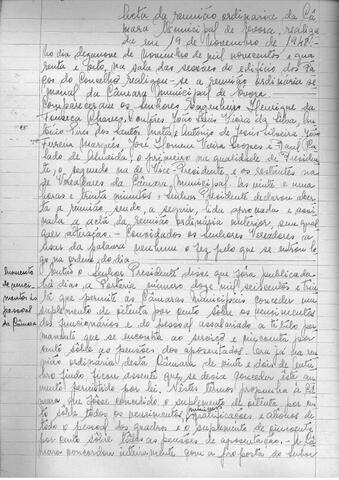 Acta da reunião ordinária da Câ-
mara Municipal de realiza-
da em 19 de Novembro de 1948.-
No dia dezanove de Novembro de mil novecentos e qua-
renta e oito, na sala das sessões do edifício dos Pa-
ços do Concelho realizou-se a reunião ordinária se-
manal da Câmara Municipal de
Compareceram os senhores Engenheiro Henrique da
Fonseca Chaves, João Luís da Silva, An-
tónio Pires dos Santos, e António de Jesus, João
Ferreira Marques, José Homem Vieira e Raul
de Almeida, o primeiro na qualidade de Presiden-
te, o segundo na de Vice-Presidente e os restantes na
de Vereadores da Câmara Municipal. Às vinte e uma
horas e trinta minutos o Senhor Presidente declarou aber-
ta a reunião sendo, a seguir, lida aprovada e assi-
nada a acta da reunião ordinária anterior, sem qual-
quer alteração. - Convidados os Senhores Vereadores a
usar da palavra nenhum o fez pelo que se entrou lo-
go na ordem do dia.
Aumento
de venci-
mentos ao
pessoal
da Câmara
Então o Senhor Presidente disse que fora publicada
há dias a Portaria número doze mil seiscentos e trin-
ta que permite às Câmaras Municipais conceder um
suplemento de oitenta por cento sobre os vencimentos
dos funcionários e do pessoal assalariado a título per-
manente que se encontra ao serviço e cinquenta por
cento sobre as pensões dos aposentados. Que já na reu-
nião ordinária desta Câmara de vinte e dois de Outu-
bro findo ficou assente que, se devia conceder este au-
mento permitido por lei. Nestes termos propunha à Câ-
mara que fosse concedido o suplemento de oitenta por cen-
to sobre todos os vencimentos, gratificações e abonos de
todo o pessoal dos quadros e o suplemento de cinquenta
por cento sobre todas as pensões de aposentação. - A Câ-
mara concordou inteiramente com a proposta do Senhor